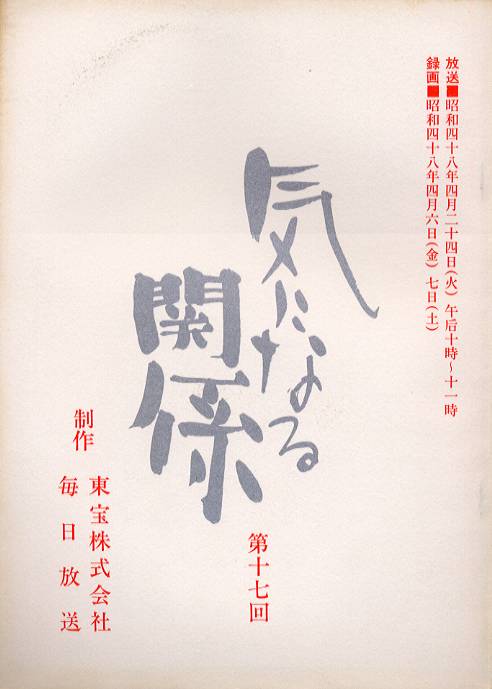 放送■昭和四十八年四月二十四日(火) 午后十時~十一時
録画■昭和四十八年四月六日(金) 七日(土)
気になる
関係
第十七回
制作
東宝株式会社
毎日放送